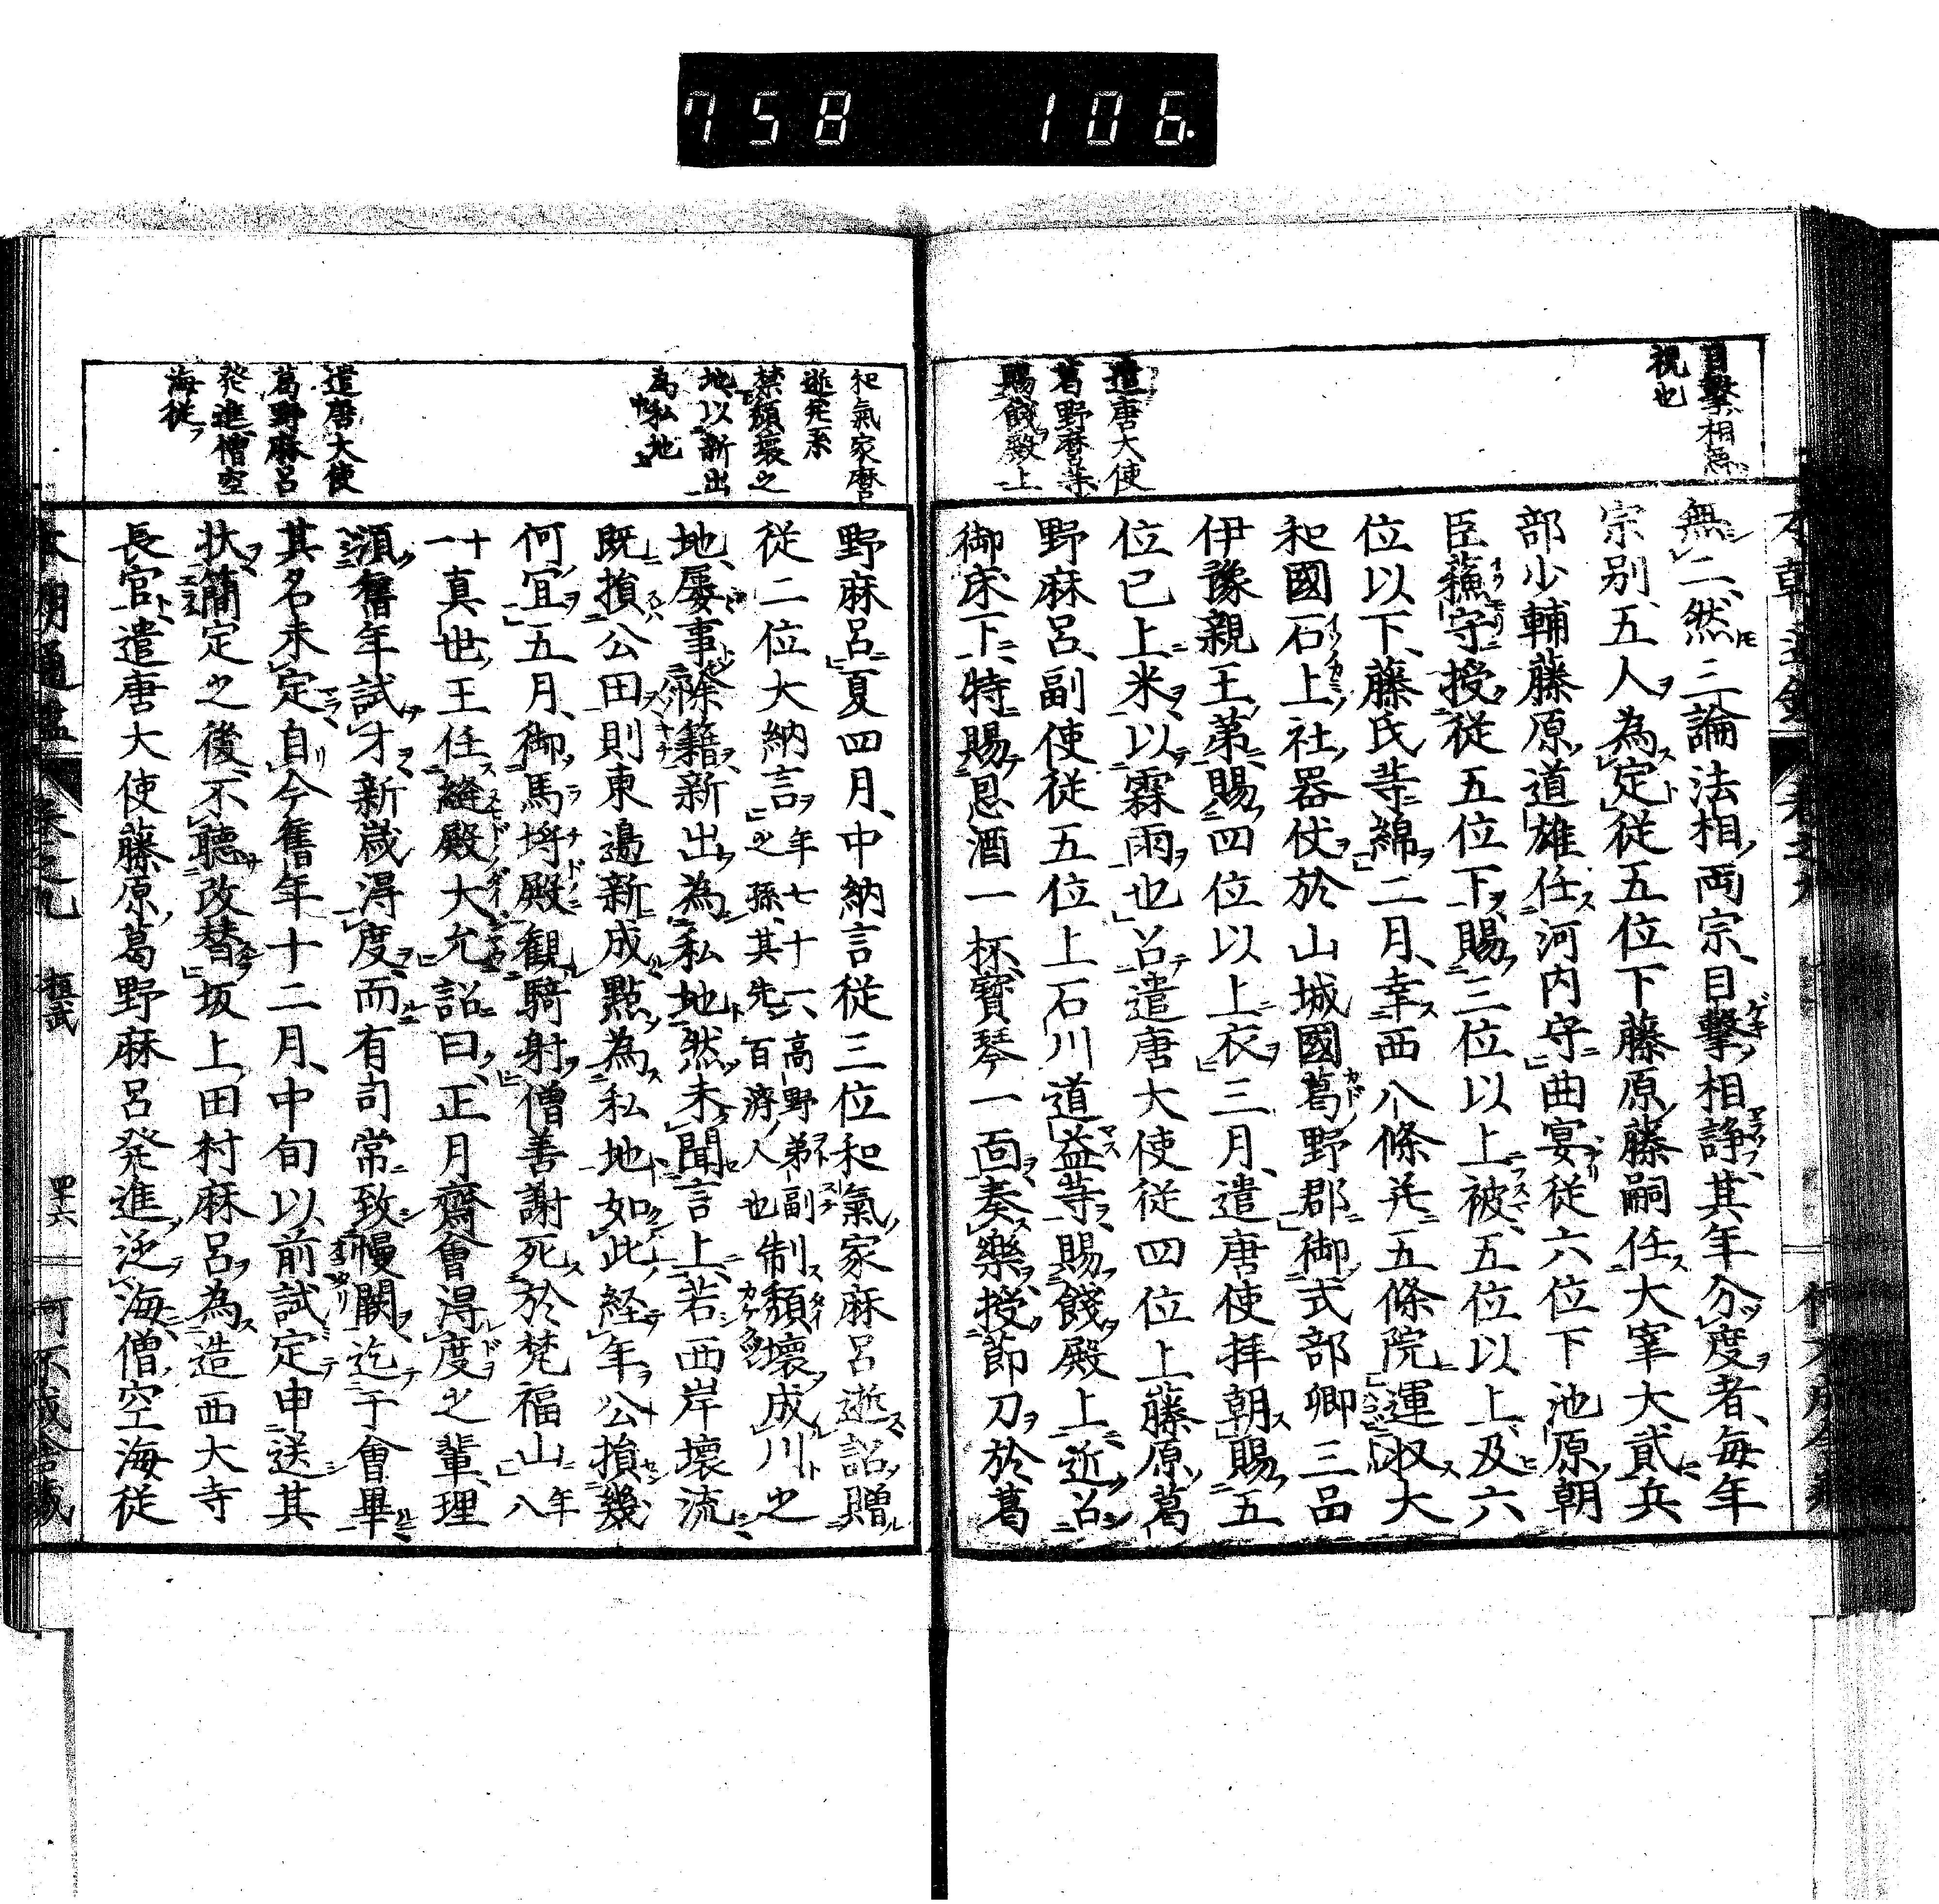 758 106.
目撃相
視也
遣唐大使
葛野麿等
賜餞殿上
無二然三論法相両宗目撃相諍其年分度者毎年
宗別五人為定従五位下藤原藤嗣任大宰大貳兵
部少輔藤原道雄任河内守曲宴従六位下池原朝
臣蘓守授従五位下賜三位以上被五位以上及六
位以下藤氏等綿二月幸西八條并五條院運収大
和國石上社器仗於山城國葛野郡御式部卿三品
伊豫親王第賜四位以上衣三月遣唐使拝朝賜五
位已上米以霖雨也召遣唐大使従四位上藤原葛
野麻呂副使従五位上石川道益等賜餞殿上近召
御床下特賜恩酒一杯寶琴一面奏樂授節刀於葛
和氣家麿
逝并系
禁頽壊之
地以新出
為私地
遣唐大使
葛野麻呂
発進僧空
海従
野麻呂夏四月中納言従三位和氣家麻呂逝詔贈
従二位大納言年七十一高野弟副之孫其先百済人也制頽壊成川之
地屡事除籍新出為私地然未聞言上若西岸壊流
既損公田則東邉新成點為私地如此経年公損幾
何宜五月御馬埒殿観騎射僧善謝死於梵福山年八
十一真世王任縫殿大允詔曰正月齋會得度之輩理
須舊年試才新歳得度而有司常致慢闕迄于會畢
其名未定自今舊年十二月中旬以前試定申送其
状簡定之後不聴改替坂上田村麻呂為造西大寺
長官遣唐大使藤原葛野麻呂発進泛海僧空海従
本朝通鑑 巻之九 桓武 四十六